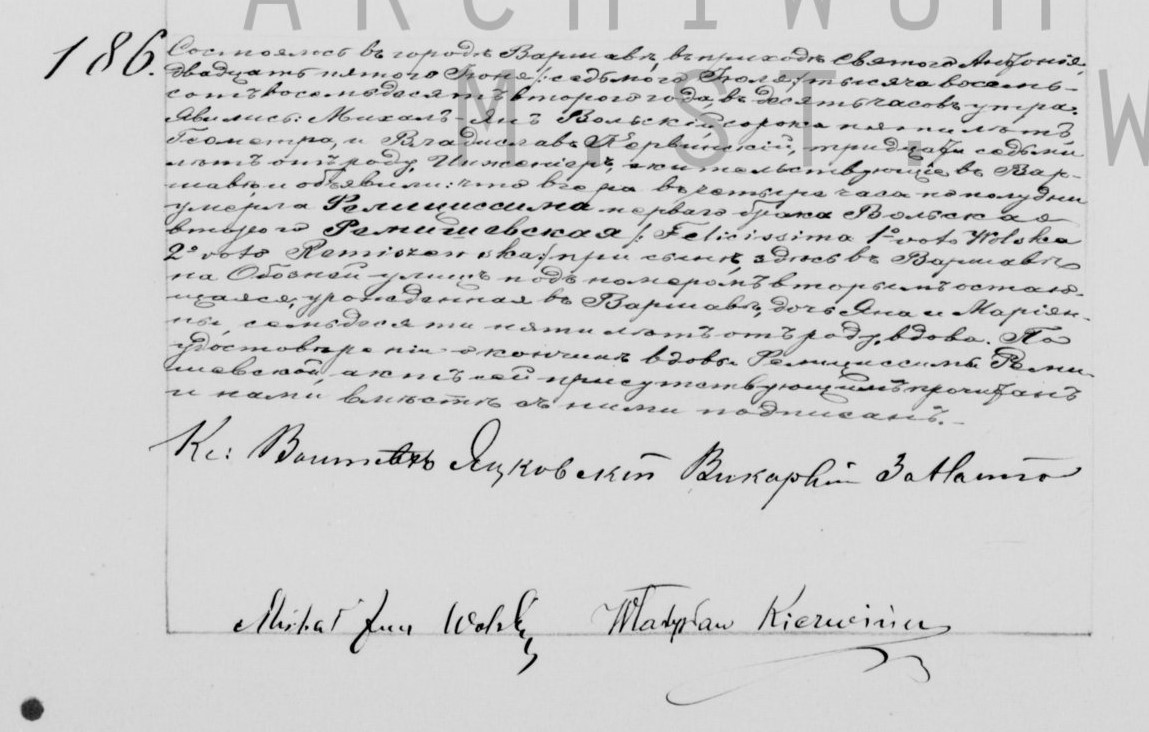 ARCHIWUM
M.ST.W
186.
Состоялось въ городѣ Варшавѣ, въ приходѣ Святого Антонія,
двадцать пятого Іюня /: седьмого Іюля :/ тысяча восемь-
сотъ восемьдесятъ второго года, въ десять часовъ утра.
Явились: Михалъ-Янъ Вольскій, сорока пяти лѣтъ
Геометра, и Владиславъ Кервинскій, тридцати седьми
лѣтъ отъ роду, Инженеръ, жительствующіе въ Вар-
шавѣ, и объявили: что вчера въ четыре часа пополудни
умерла Фелициссима первого брака Вольская
второго Ремишевская /: Felicissima 1º voto Wolska
2º voto Remiszewska :/ при сынѣ, здѣсь въ Варшавѣ
на Обозной улицѣ подъ номеромъ вторымъ остаю-
щаяся, урожденная въ Варшавѣ, дочь Яна и Маріян-
ны, семьдесяти пяти лѣтъ отъ роду, вдова. По
удостовѣреніи о кончинѣ вдовы Фелициссимы Реми-
шевской, актъ сей присутствующимъ прочитанъ
и нами вмѣстѣ съ ними подписанъ.-
Кс: Яцковскій Викарій
Michał Jan Wolski Władysław